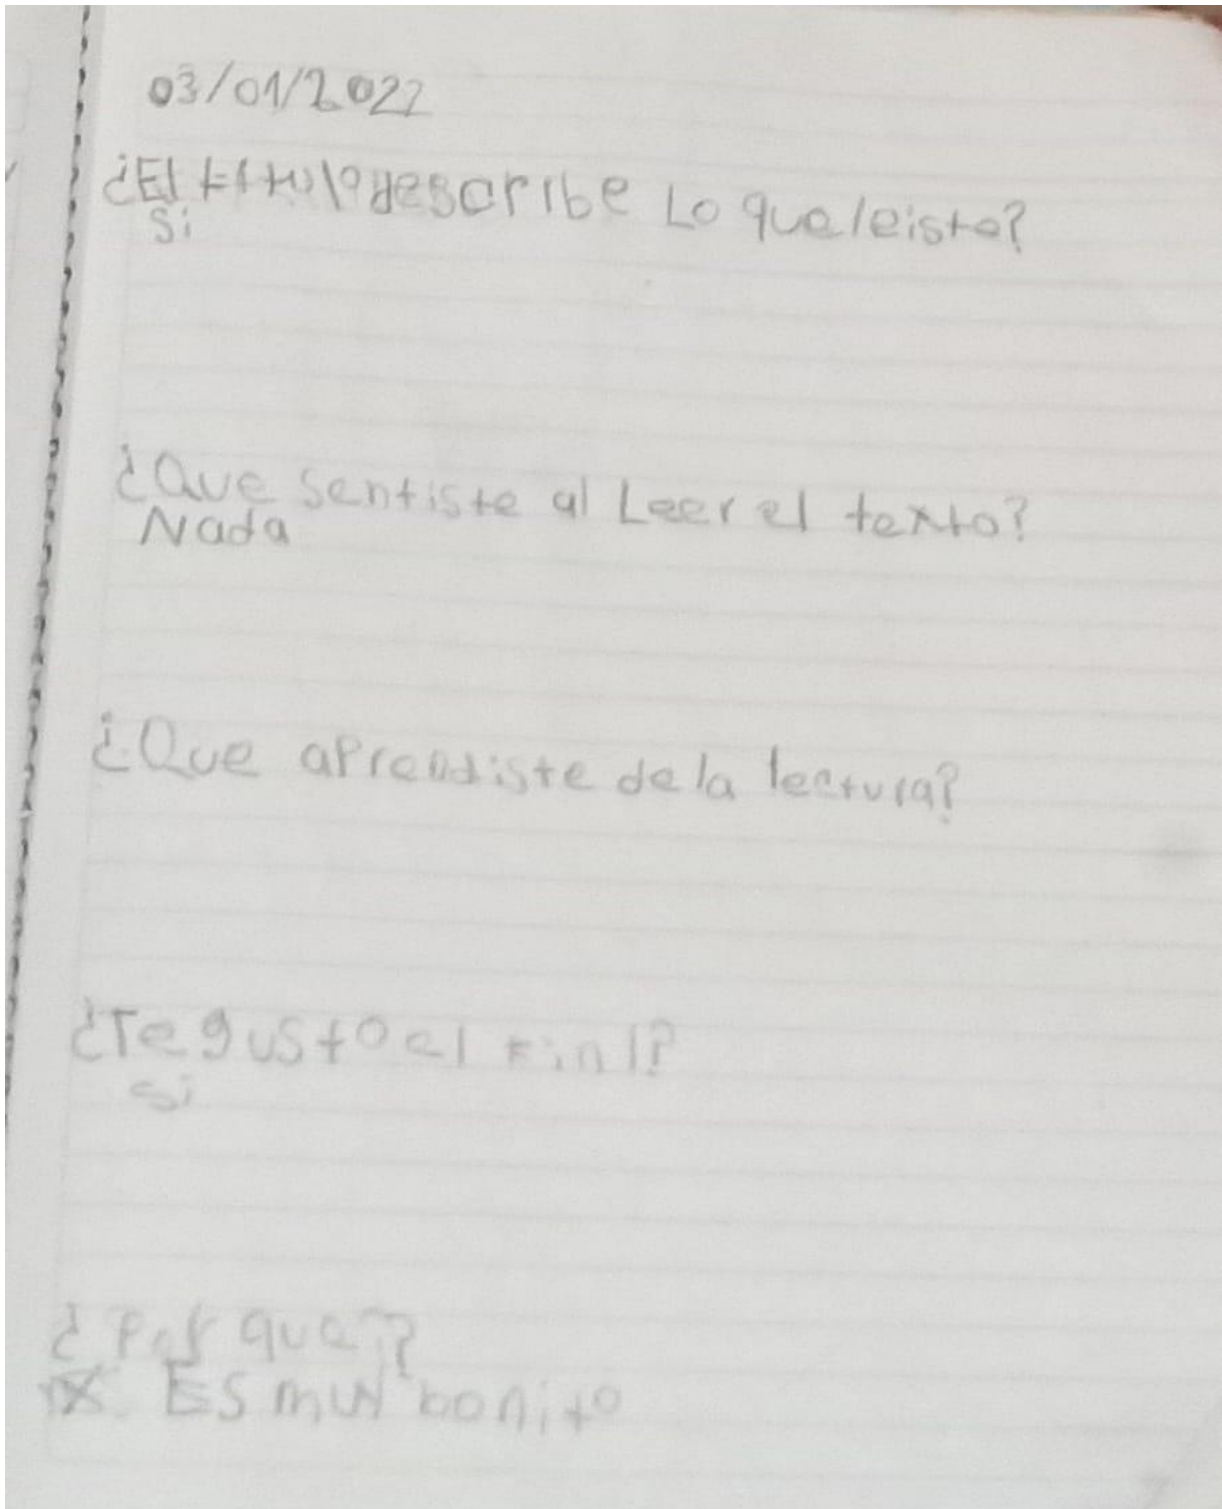 03/01/2022
¿El titulo describe Lo que leiste?
Si
¿Que sentiste al Leer el texto?
Nada
¿Que aprendiste de la lectura?
¿Te gusto el Finl?
si
¿Por que?
Es muy bonito